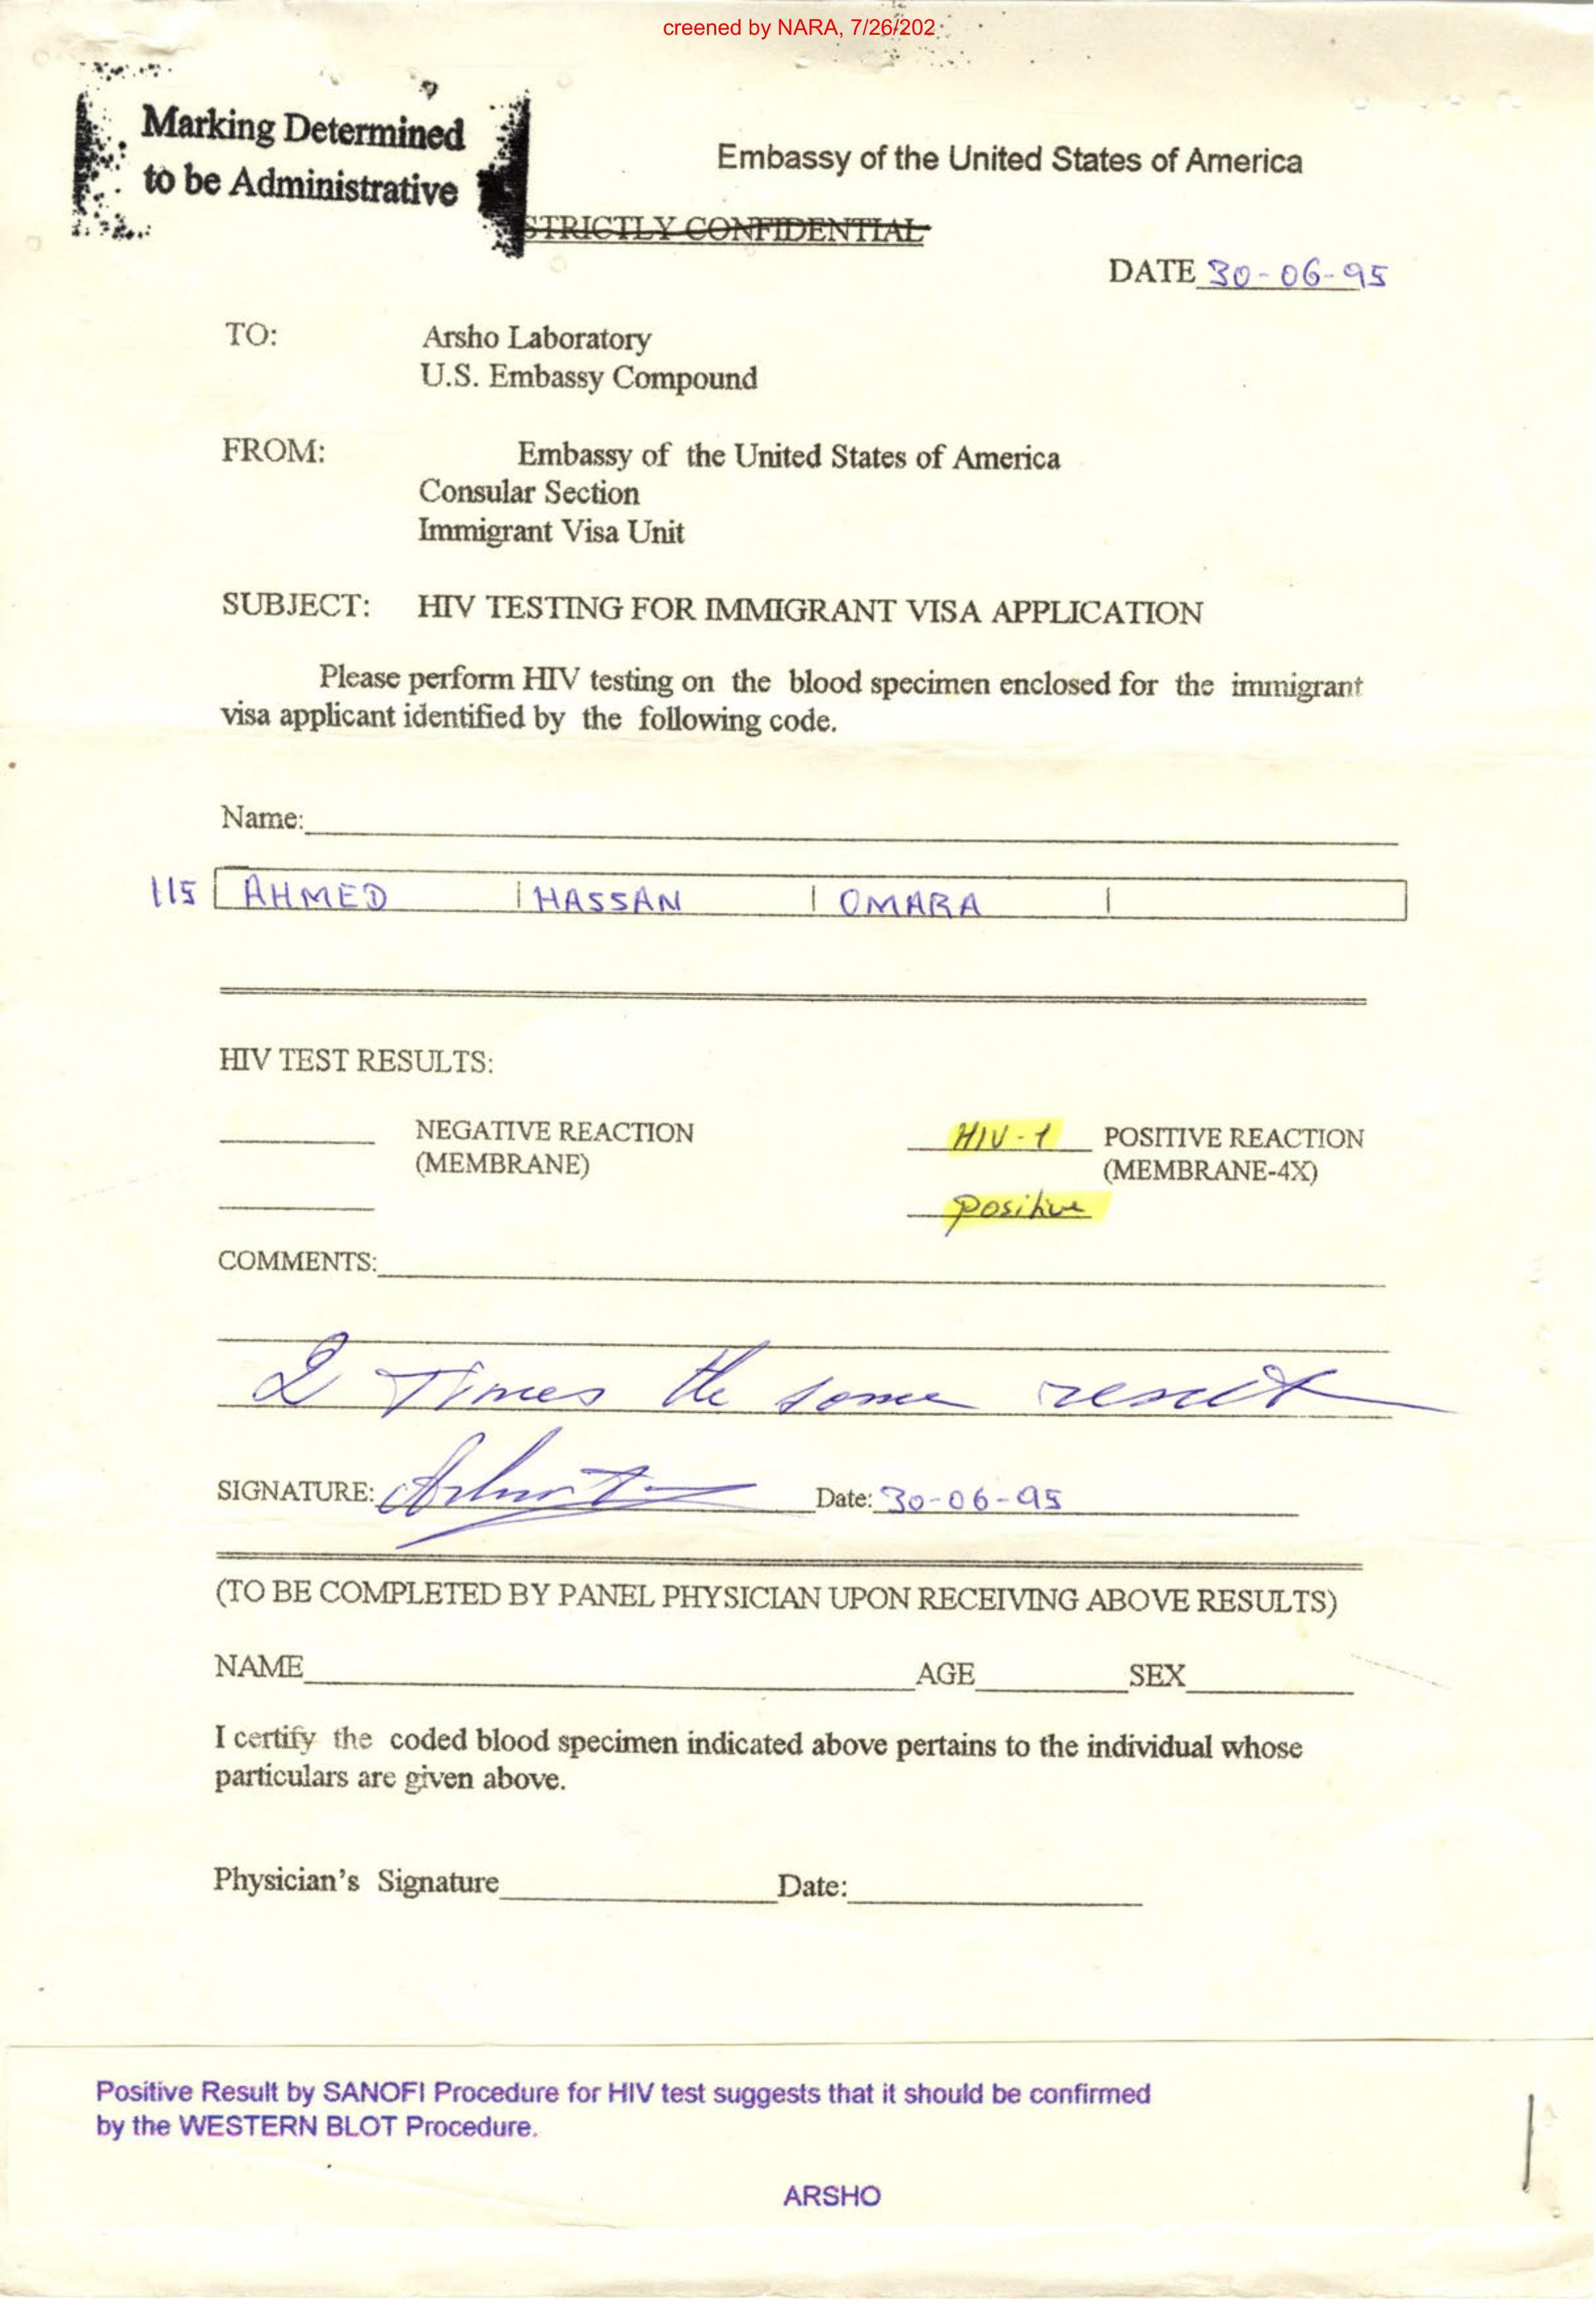 creened by NARA, 7/26/202
Marking Determined
to be Administrative
Embassy of the United States of America
STRICTLY CONFIDENTIAL
DATE 30-06-95
TO: Arsho Laboratory
U.S. Embassy Compound
FROM: Embassy of the United States of America
Consular Section
Immigrant Visa Unit
SUBJECT: HIV TESTING FOR IMMIGRANT VISA APPLICATION
Please perform HIV testing on the blood specimen enclosed for the immigrant
visa applicant identified by the following code.
Name:
115 AHMED HASSAN OMARA
HIV TEST RESULTS:
NEGATIVE REACTION HIV-1 POSITIVE REACTION
(MEMBRANE) (MEMBRANE-4X)
positive
COMMENTS:
2 Times the same result
SIGNATURE: Date: 30-06-95
(TO BE COMPLETED BY PANEL PHYSICIAN UPON RECEIVING ABOVE RESULTS)
NAME AGE SEX
I certify the coded blood specimen indicated above pertains to the individual whose
particulars are given above.
Physician's Signature Date:
Positive Result by SANOFI Procedure for HIV test suggests that it should be confirmed
by the WESTERN BLOT Procedure.
ARSHO